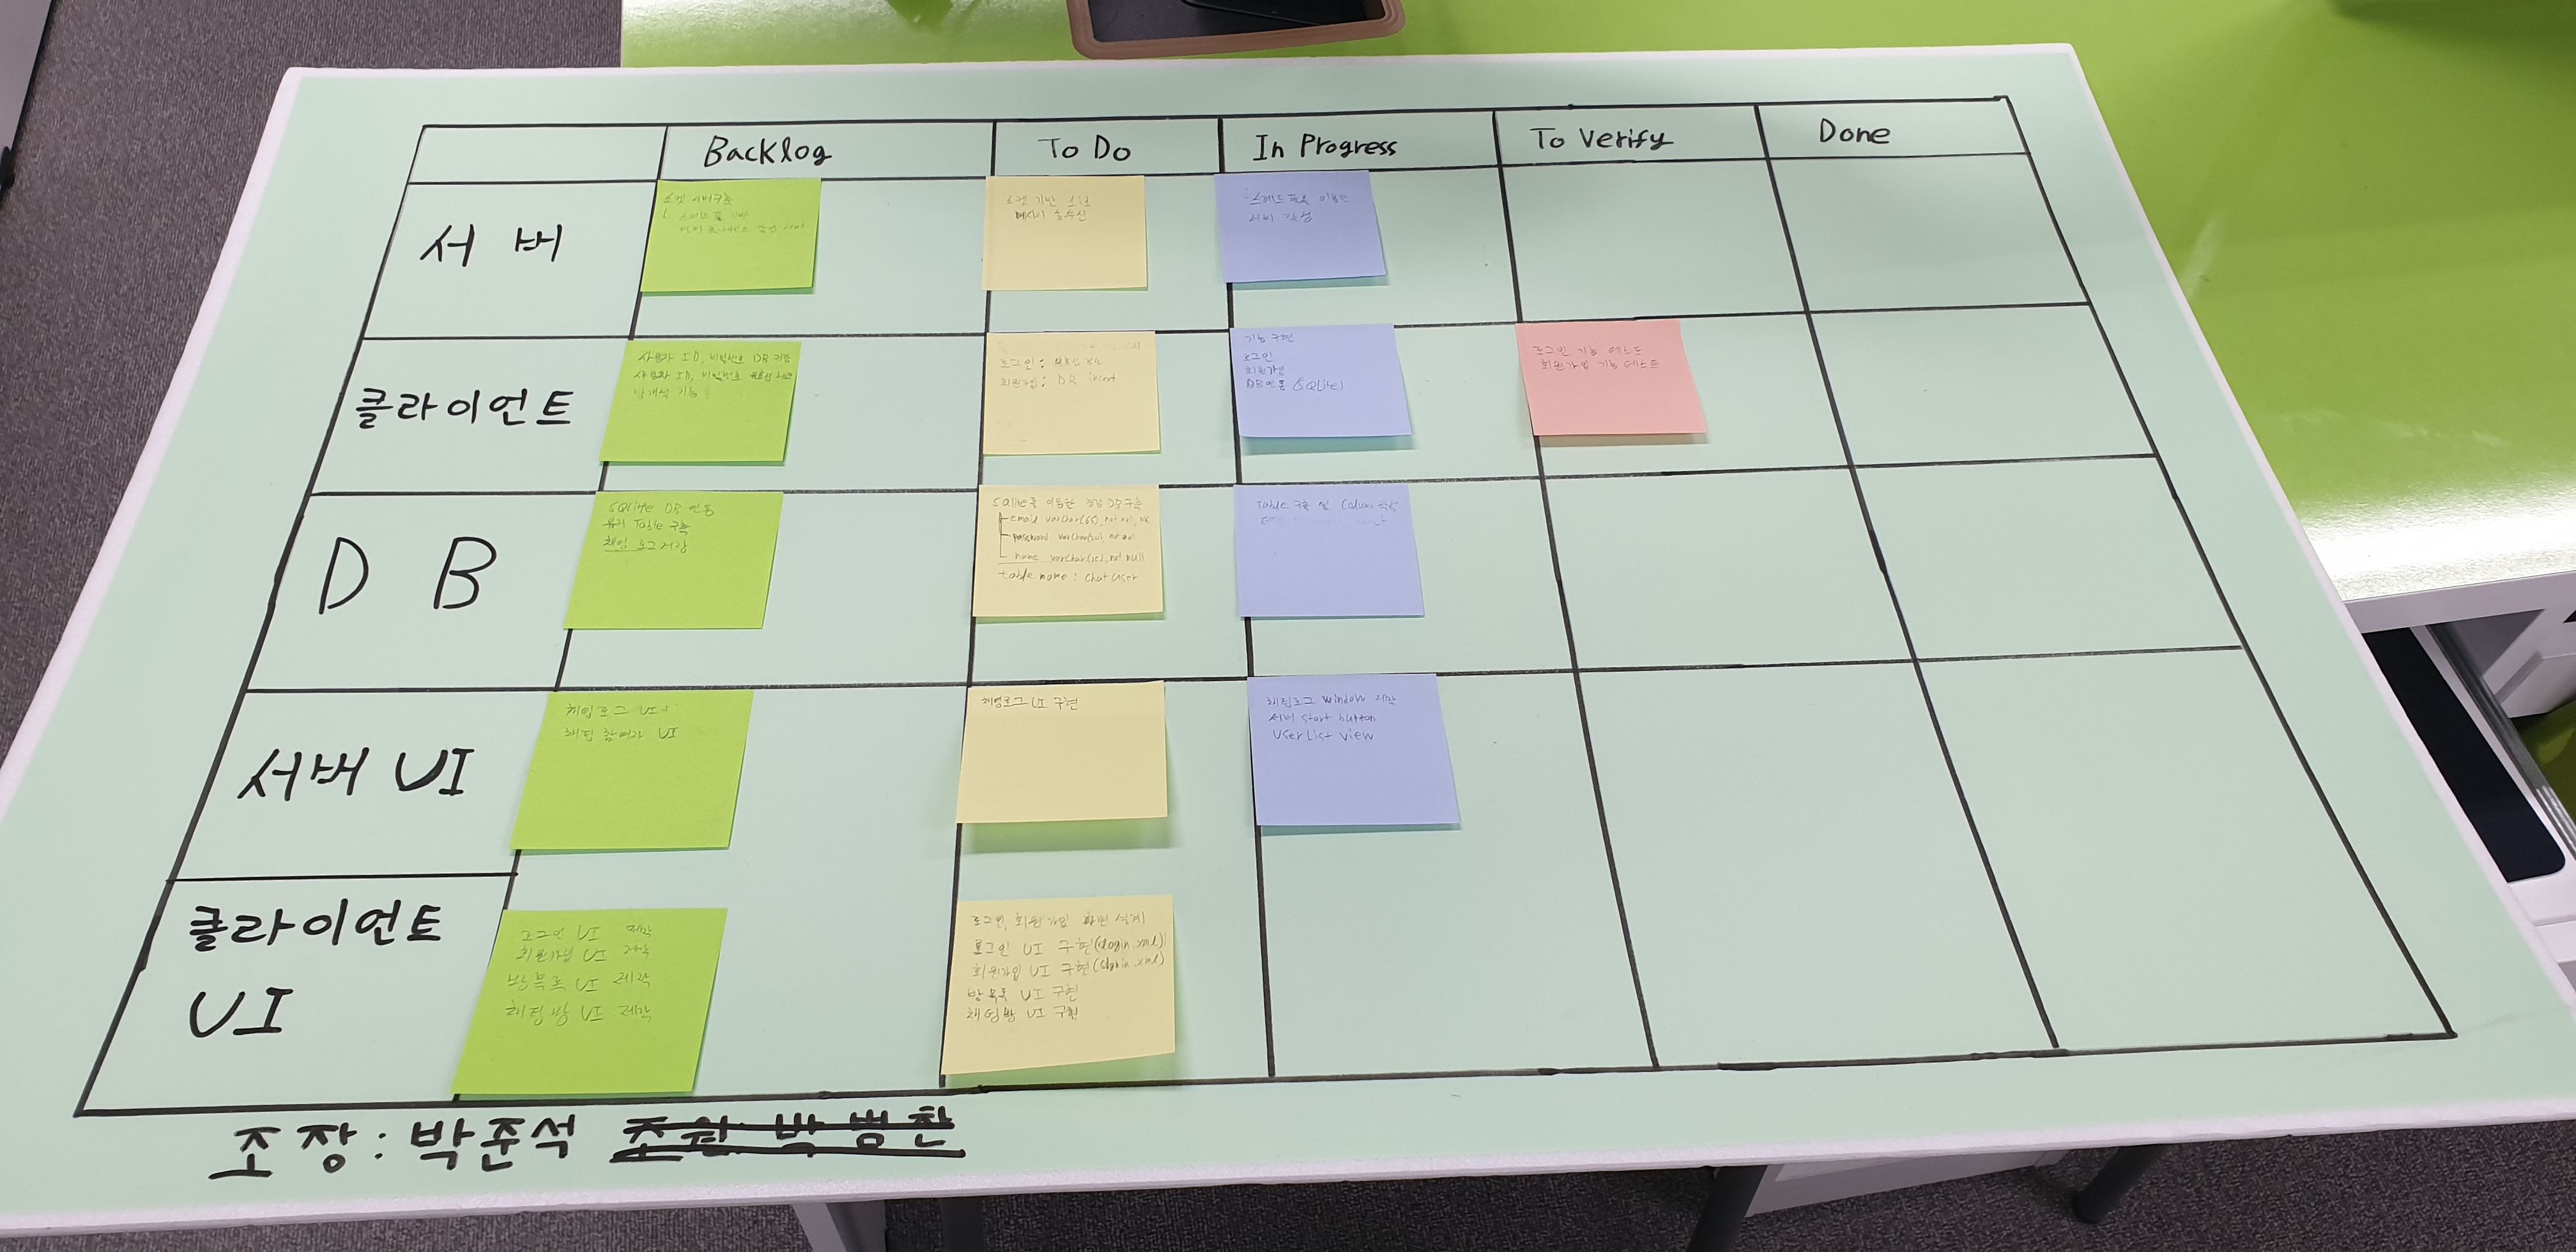 Backlog
To Do
In Progress
To Verify
Done
서 버
소켓 서버구축
스레드 풀 기반
소켓 기반
메시지 송수신
스레드 풀을 이용한
서버 작성
클라이언트
사용자 ID, 비밀번호 DB 저장
사용자 ID, 비밀번호 유효성
방개설 기능
로그인 : 유효성
회원가입 : DB insert
기능 구현
로그인
회원가입
DB 연동 (SQLite)
로그인 기능 테스트
회원가입 기능 테스트
D B
SQLite DB 연동
유저 Table 구축
채팅 로그 저장
SQlite를 이용한 DB 구축
email varchar(65), not null,
password varchar(20), not null
name varchar(15), not null
table name : chat user
Table 구축 및 Column 작성
서버 UI
채팅로그 UI
채팅 참여자 UI
채팅로그 UI 구현
채팅로그 window 제작
서버 start button
User List view
클라이언트
UI
로그인 UI 제작
회원가입 UI 제작
방목록 UI 제작
채팅방 UI 제작
로그인, 회원가입 화면 설계
로그인 UI 구현(login.xml)
회원가입 UI 구현(signin.xml)
방 목록 UI 구현
채팅방 UI 구현
조장 : 박준석